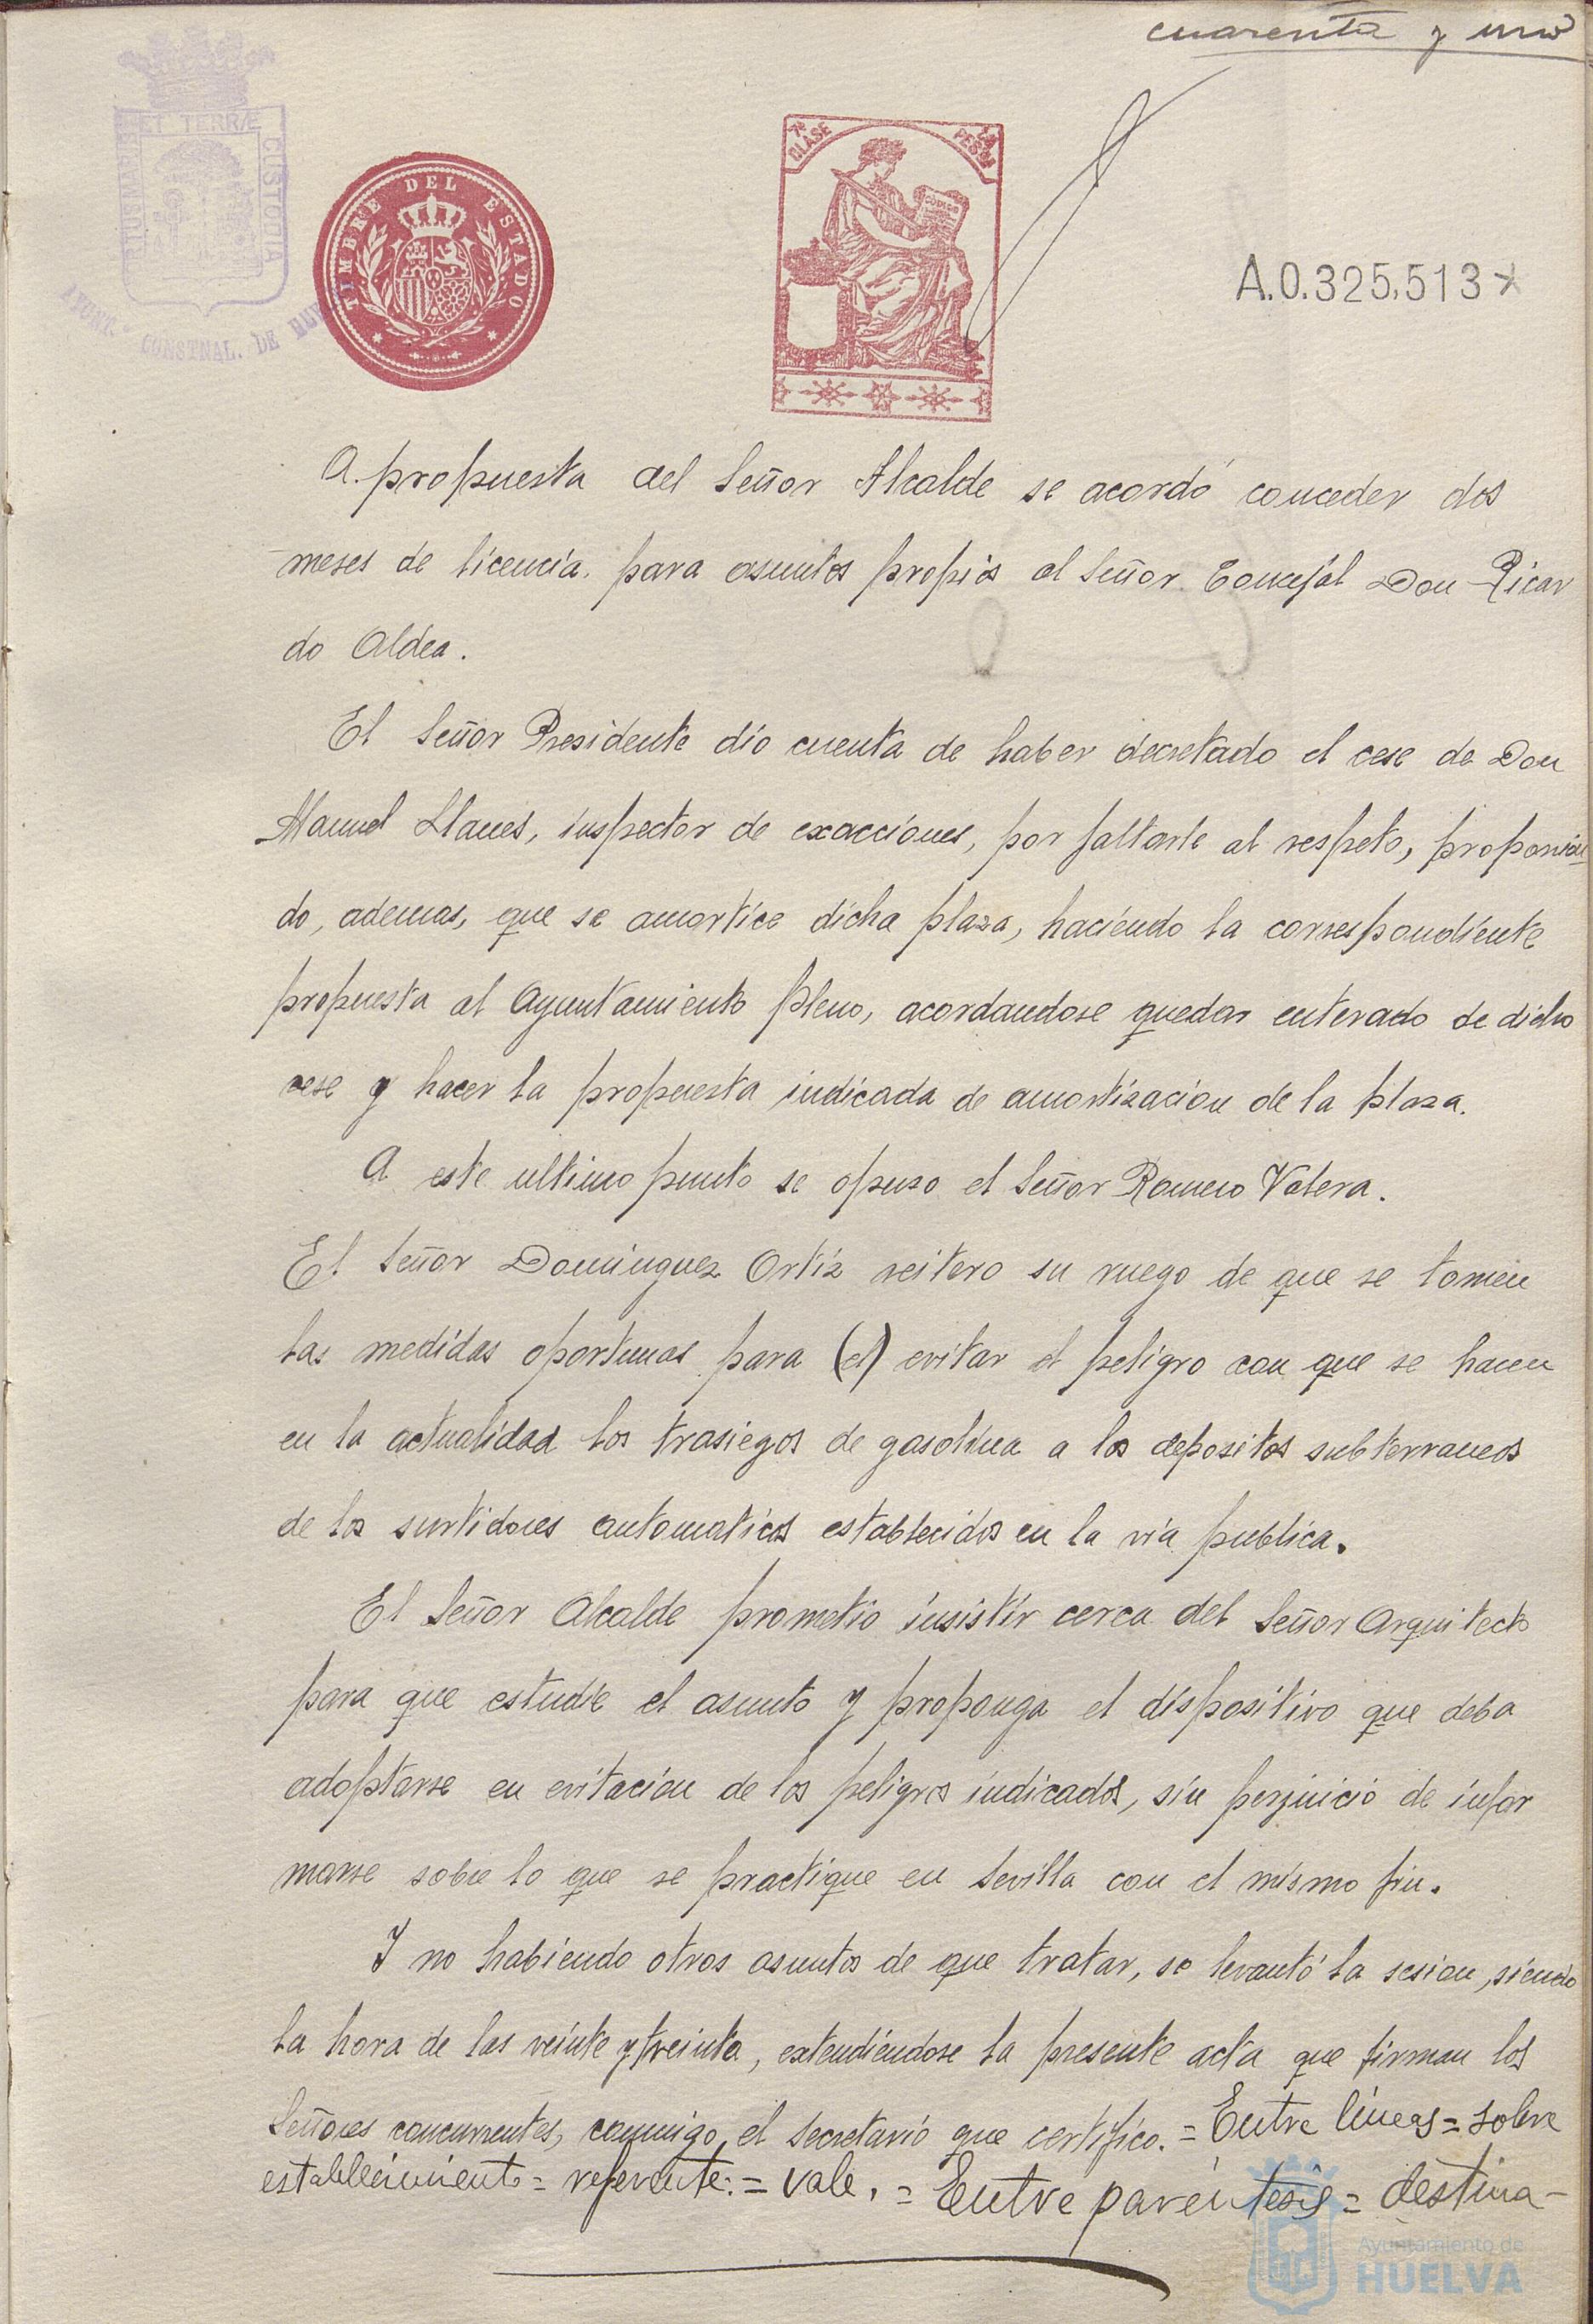 cuarenta y uno
ET TERRÆ
CUSTODIA
AYUNT.º CONSTNAL. DE
TIMBRE DEL ESTADO
7ª CLASE
CODIGO
A.0.325,513*
A. propuesta del Señor Alcalde se acordó conceder dos
meses de licencia. para asuntos propios al Señor. Concejal Don Ricar
do Aldea.
El Señor Presidente dio cuenta de haber decretado el cese de Don
Manuel Llanes, inspector de exacciones, por faltarle al respeto, proponien
do, ademas, que se amortice dicha plaza, haciendo la correspondiente
propuesta al Ayuntamiento pleno, acordandose quedar enterado de dicho
cese y hacer la propuesta indicada de amortizacion de la plaza.
A este ultimo punto se opuso el Señor Romero Valera.
El Señor Dominguez Ortiz reitero su ruego de que se tomen
las medidas oportunas para (el) evitar el peligro con que se hacen
en la actualidad los trasiegos de gasolina a los depositos subterraneos
de los surtidores automaticos establecidos en la via publica.
El Señor Alcalde prometio insistir cerca del Señor Arquitecto
para que estudie el asunto y proponga el dispositivo que deba
adoptarse en evitacion de los peligros indicados, sin perjuicio de infor
marse sobre lo que se practique en Sevilla con el mismo fin.
Y no habiendo otros asuntos de que tratar, se levantó la sesion, siendo
la hora de las veinte y treinta, extendiendose la presente acta que firman los
Señores concurrentes, conmigo, el Secretario que certifico. = Entre lineas = sobre
establecimiento = referente: = vale. = Entre paréntesis = destina-
Ayuntamiento de
HUELVA